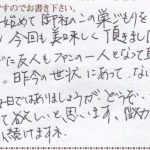 ですのでお書き下さい。
始めて御社のこの巣ごもりを
、今回も美味しく頂きました
に友人もファンの一人となって
。昨今の世状にあって、
日ではありましょうが、どうぞ、
て欲しいと思います。微力
続けますネ